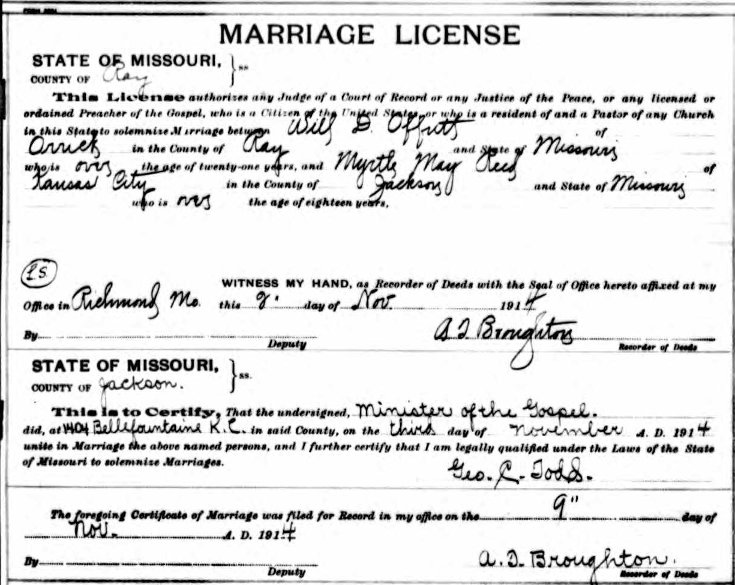 MARRIAGE LICENSE
STATE OF MISSOURI, } ss
COUNTY OF Ray
This License authorizes any Judge of a Court of Record or any Justice of the Peace, or any licensed or
ordained Preacher of the Gospel, who is a Citizen of the United States, or who is a resident of and a Pastor of any Church
in this State to solemnize Marriage between Will D. Offutt of
Orrick in the County of Ray and State of Missouri
who is over the age of twenty-one years, and Myrtle May Reed of
Kansas City in the County of Jackson and State of Missouri
who is over the age of eighteen years.
L.S. WITNESS MY HAND, as Recorder of Deeds with the Seal of Office hereto affixed at my
Office in Richmond Mo. this 2" day of Nov 1914
By Deputy A. D. Broughton Recorder of Deeds
STATE OF MISSOURI, } ss.
COUNTY OF Jackson.
This is to Certify, That the undersigned, Minister of the Gospel.
did, at 1404 Bellefountaine K.C. in said County, on the third day of November A. D. 1914
unite in Marriage the above named persons, and I further certify that I am legally qualified under the Laws of the State
of Missouri to solemnize Marriages.
Geo. C. Todd.
The foregoing Certificate of Marriage was filed for Record in my office on the 9" day of
Nov. A. D. 1914
By Deputy A. D. Broughton. Recorder of Deeds